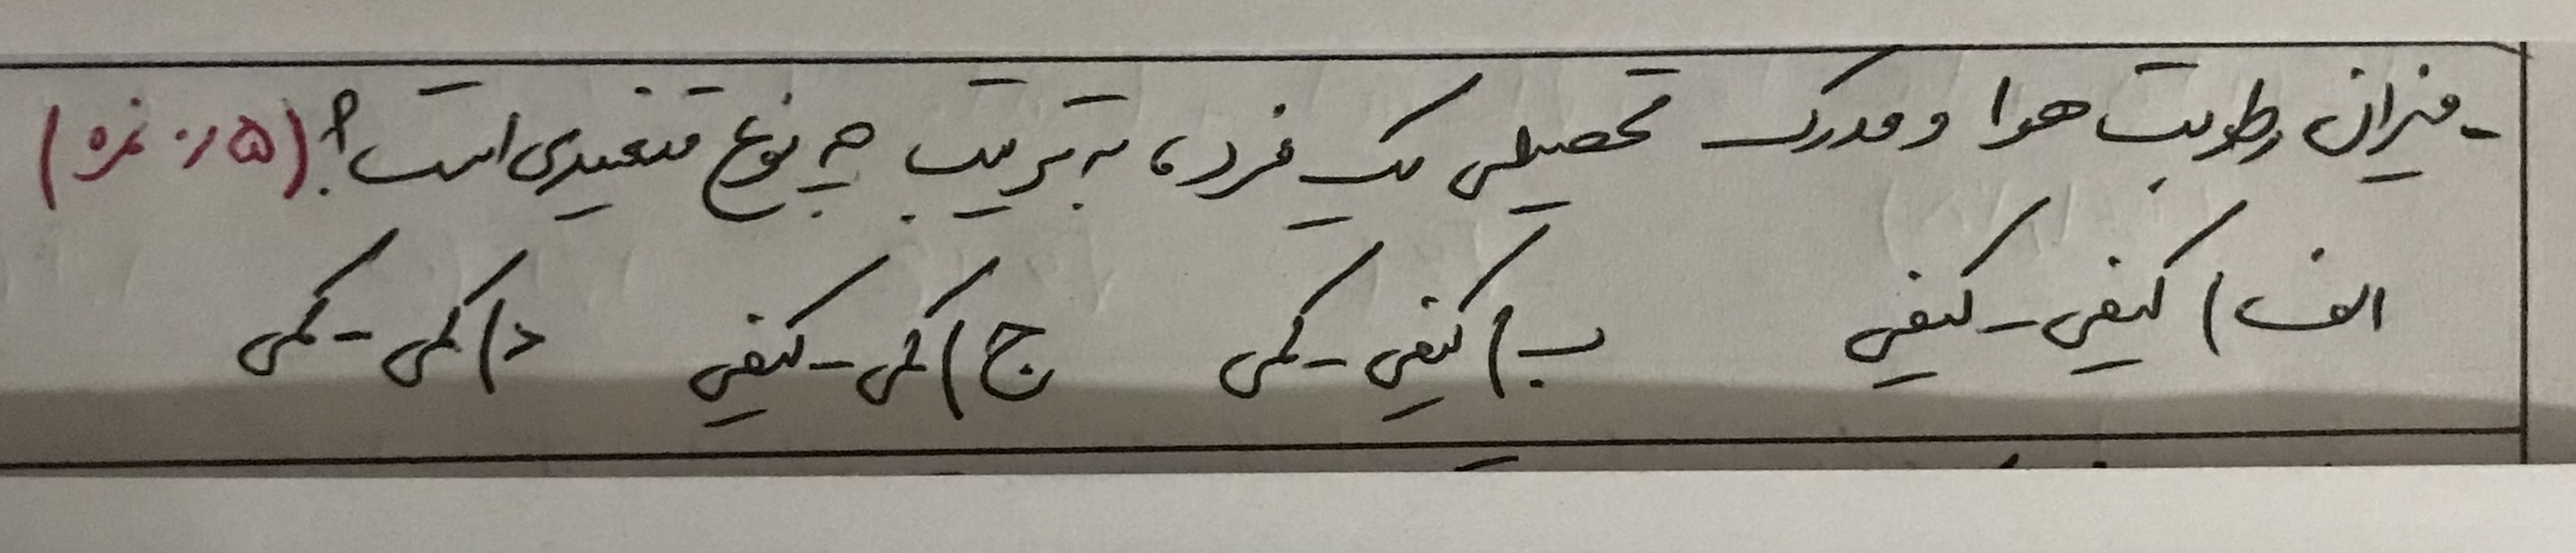 - میزان رطوبت هوا و مدرک تحصیلی یک فرد، به ترتیب چه نوع متغییری است؟ (۰/۵ نمره)
الف) کیفی - کیفی ب) کیفی - کمی ج) کمی - کیفی د) کمی - کمی